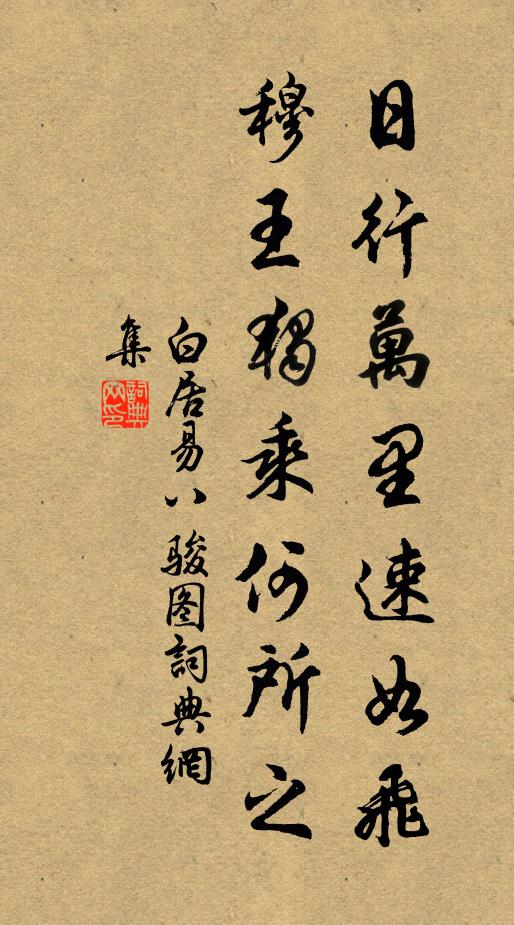 日行萬里速如飛
穆王獨乘何所之
白居易八骏图詞典網
集
詞典网印